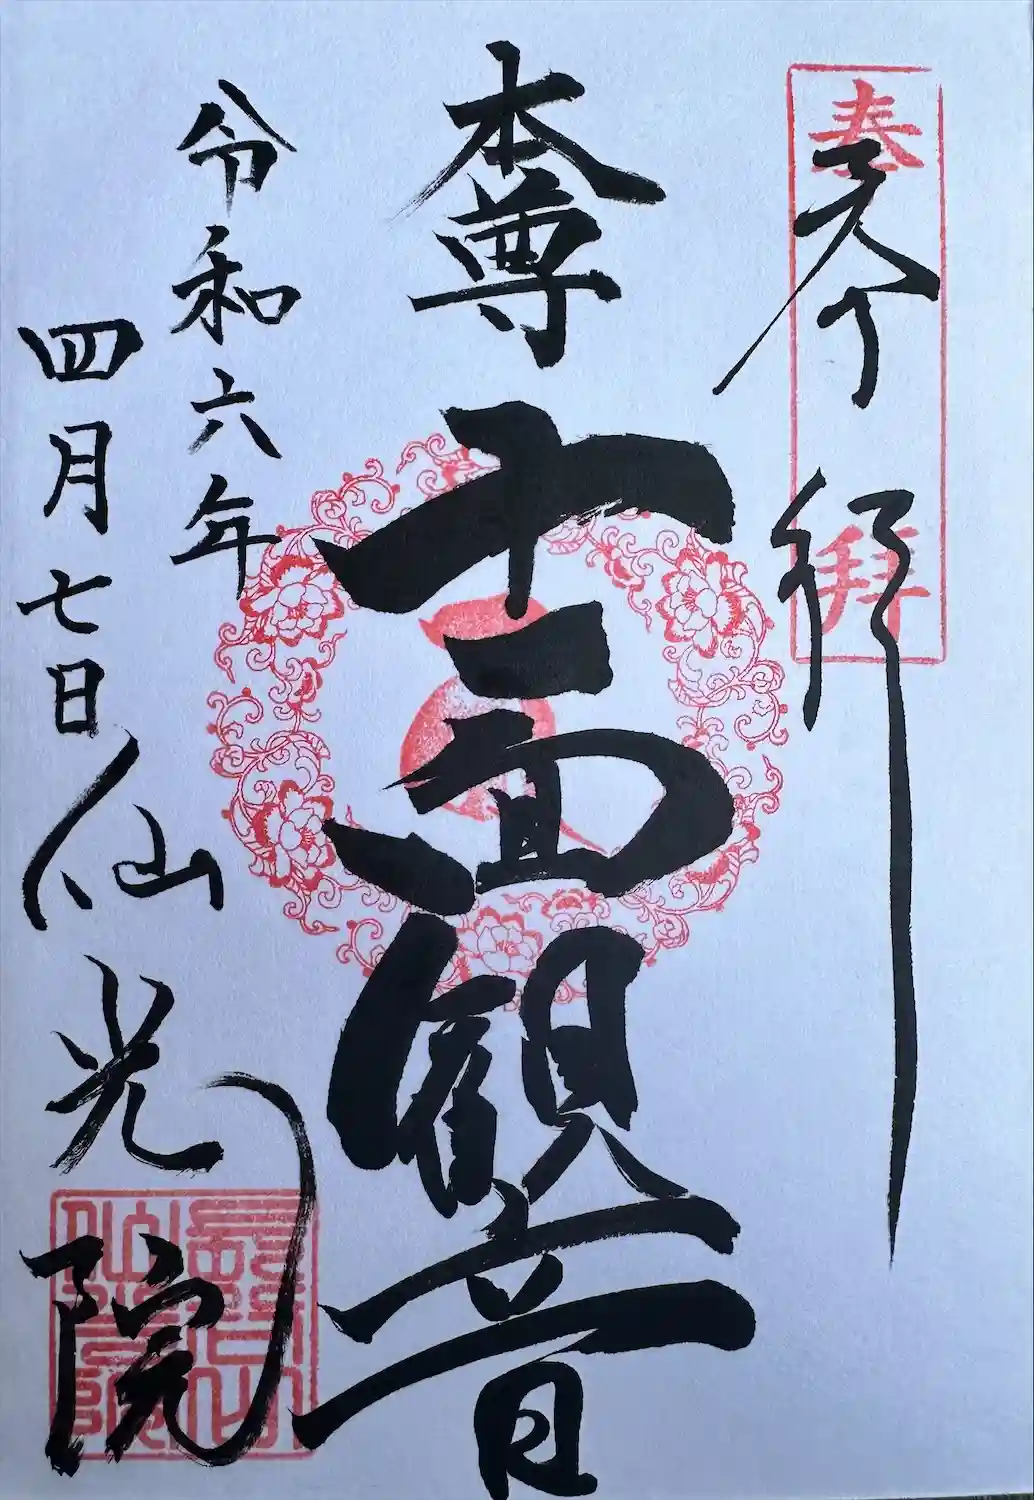 奉拝
行
本尊
十一面観音
令和六年
四月七日
仙光院